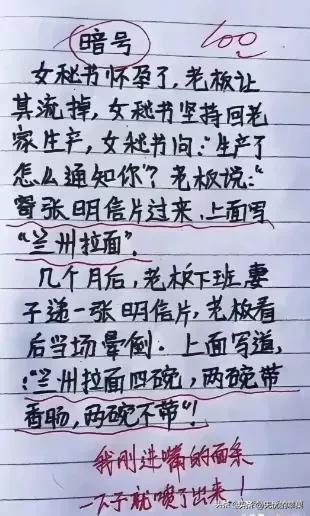 暗号
100
女秘书怀孕了,老板让
其流掉,女秘书坚持回老
家生产,女秘书问:"生产了
怎么通知你"?老板说:"
寄张明信片过来,上面写
"兰州拉面".
几个月后,老板下班,妻
子递一张明信片,老板看
后当场晕倒.上面写道,
:"兰州拉面四碗,两碗带
香肠,两碗不带"!
我刚进嘴的面条
一下子就喷了出来!